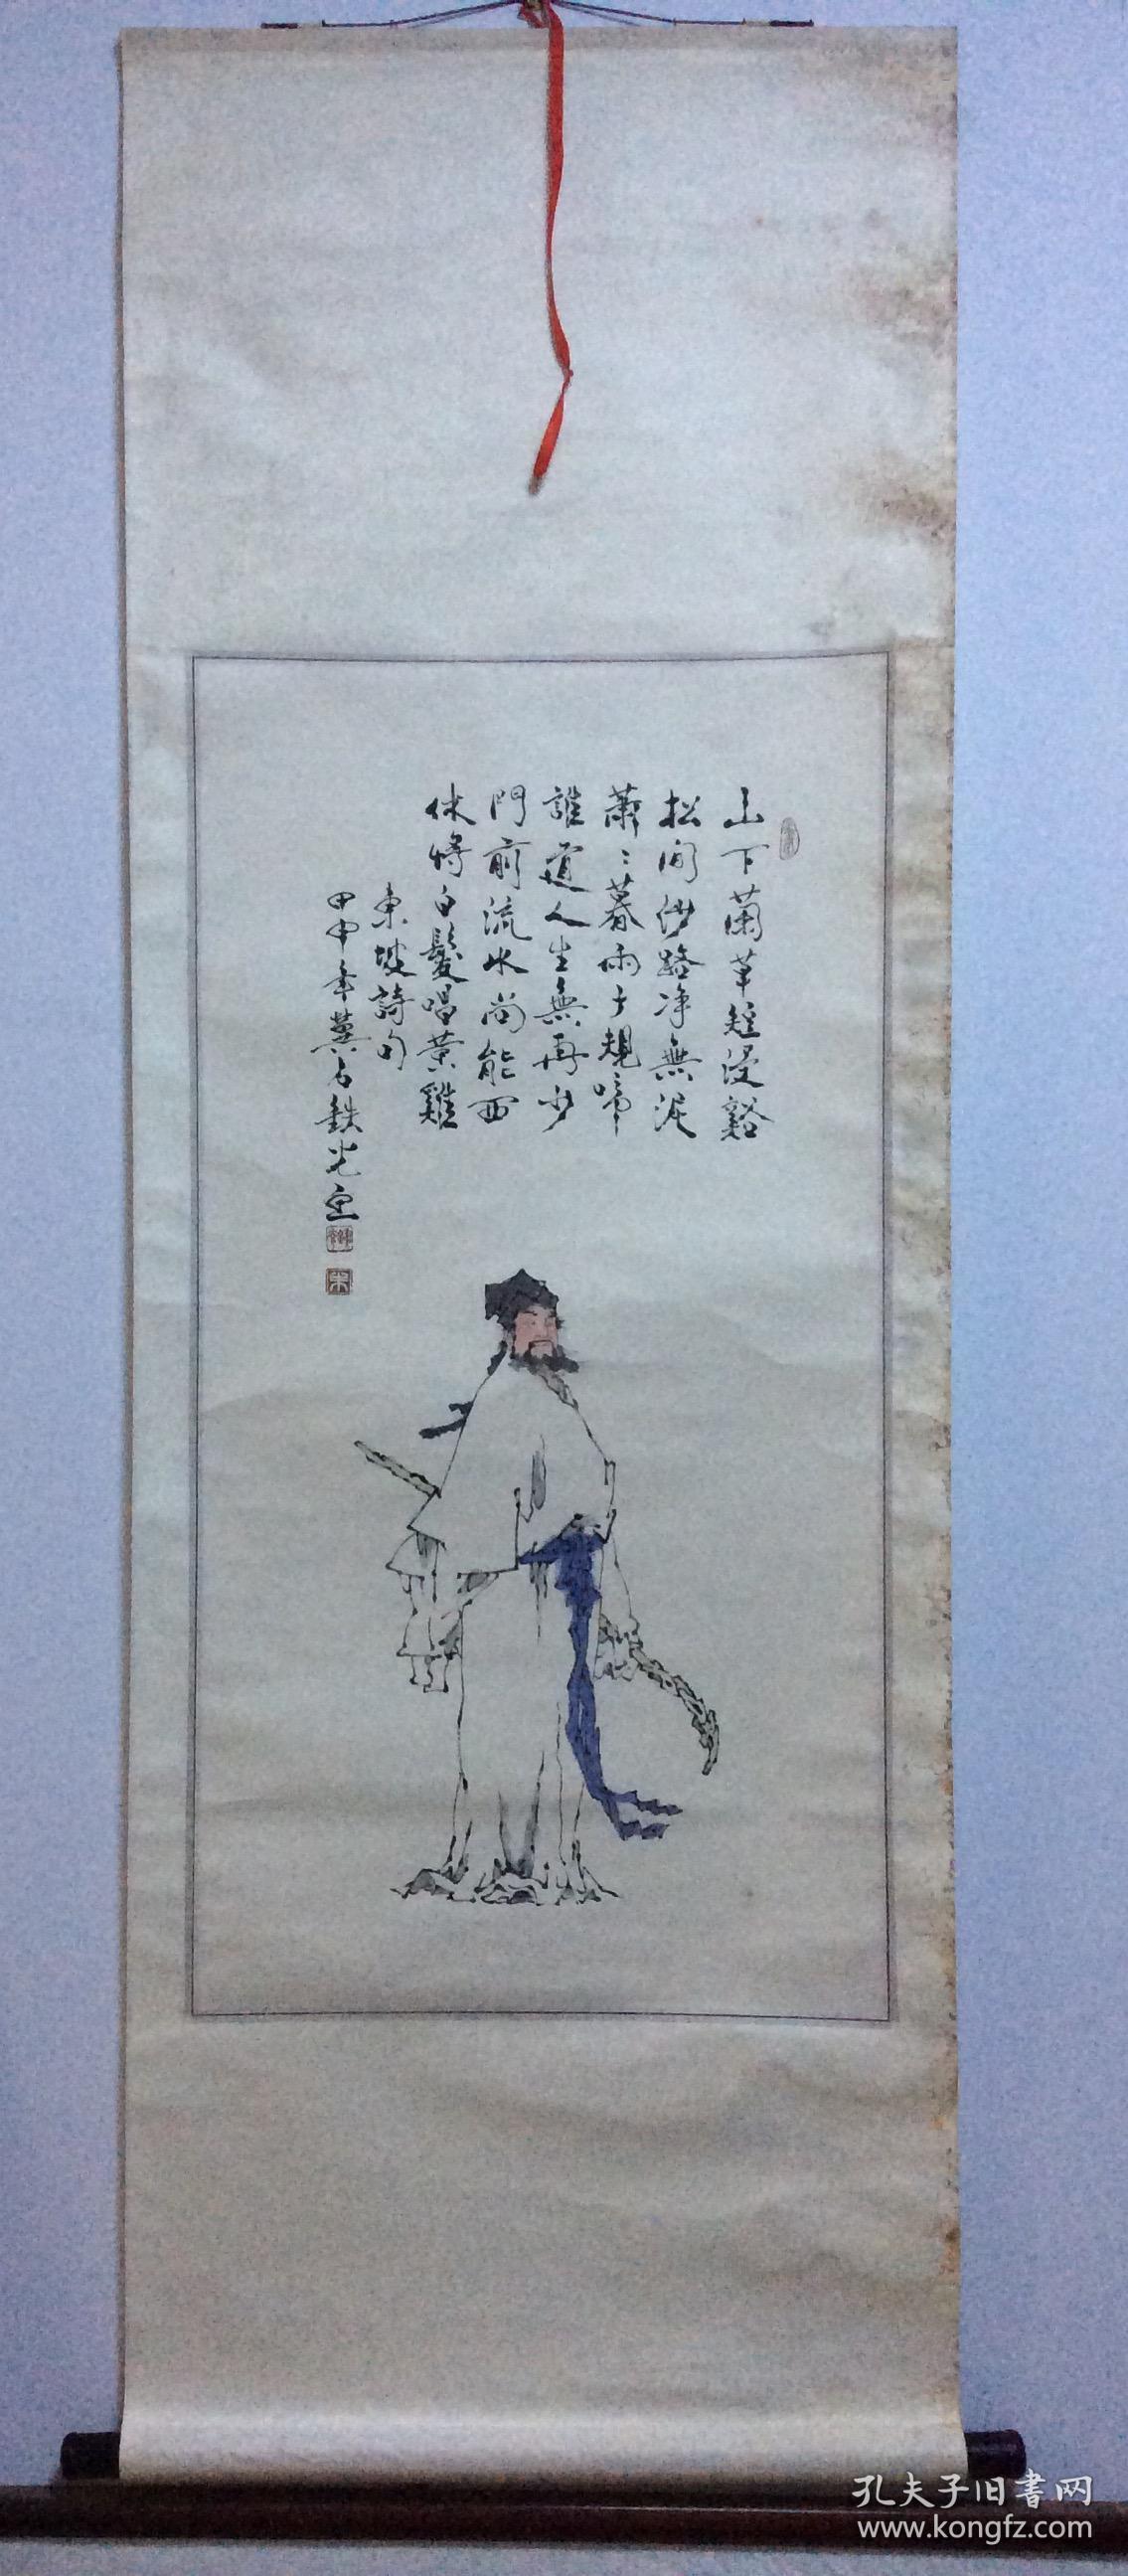 山下蘭草短浸谿
松间沙路净無泥
蕭〻暮雨子規啼
誰道人生無再少
門前流水尚能西
休將白髮唱黄雞
東坡詩句
甲申年冀石鉄光画
朱
孔夫子旧書网
www.kongfz.com